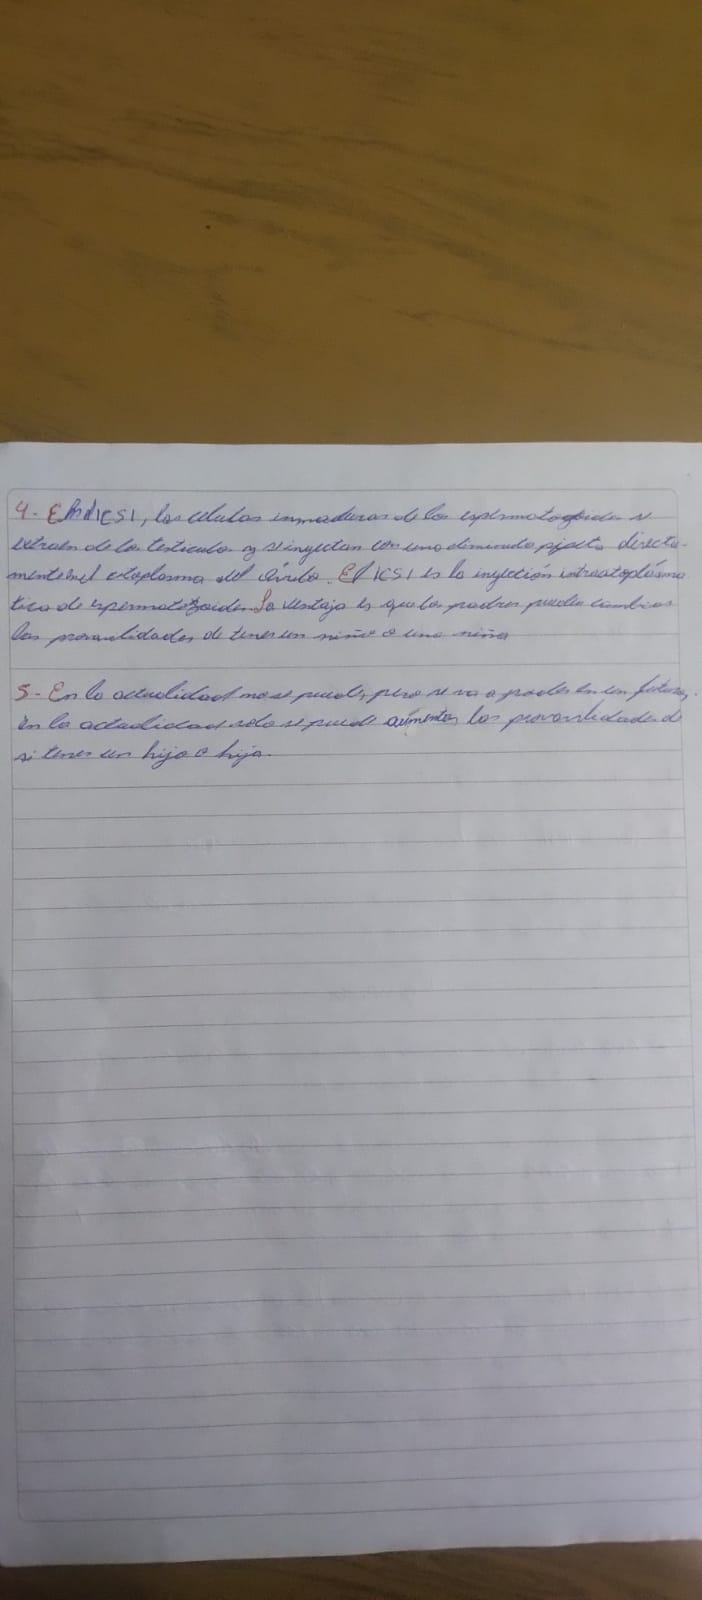 4- En el ICSI, las celulas inmaduras de los espermatozoides se
extraen de los testiculos y se inyectan con una diminuta pipeta directa-
mente en el citoplasma del óvulo. El ICSI es la inyección intracitoplasma
tica de espermatozoides. La ventaja es que los padres pueden cambiar
las provavilidades de tener un niño o una niña
5- En la actualidad no se puede, pero se va a poder en un futuro,
en la actualidad solo se puede aumentar las provavilidades d
si tener un hijo o hija.